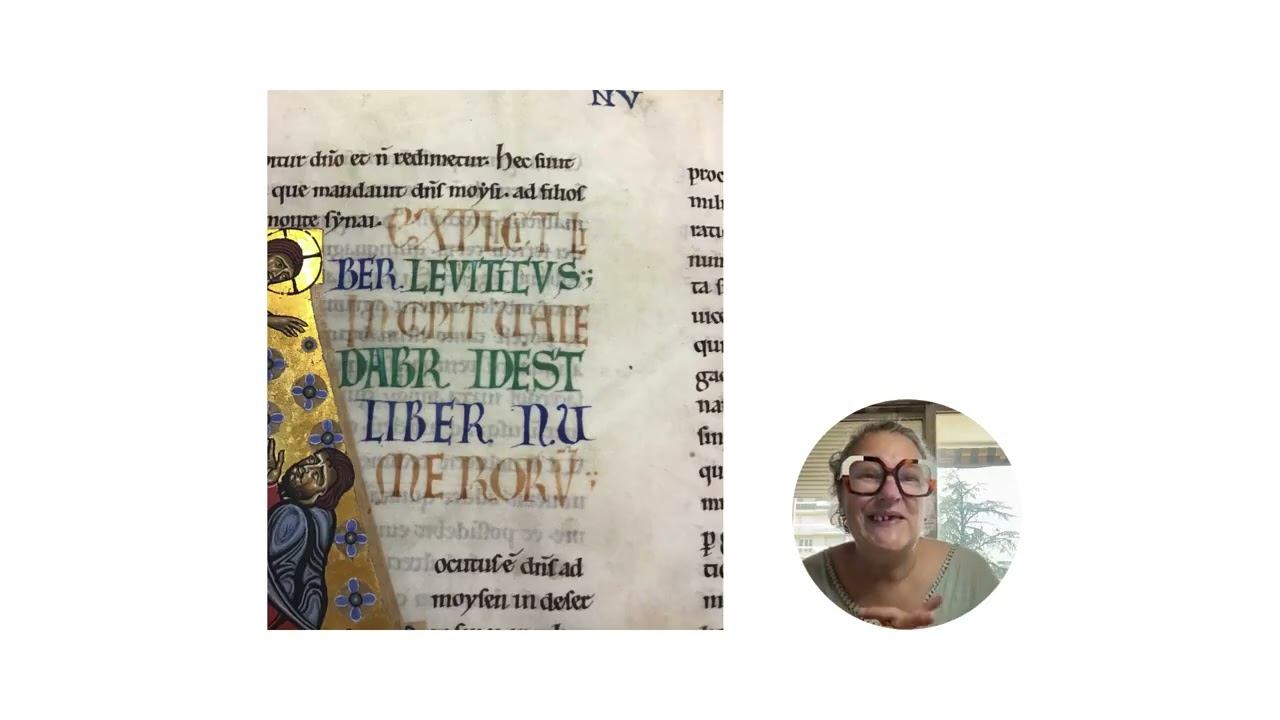 NV
itur dño et ñ redimetur. hec sunt
que mandauit dñs moysi. ad filios
monte synai.
EXPLICIT LI
BER LEVITICVS;
INCIPIT UAIE
DABR IDEST
LIBER NU
MERORŪ;
ocutus ē dñs ad
moysen in deser
proc
mili
rati
num
ta f
uice
qui
gae
na
sin
qu
mi
tio
m